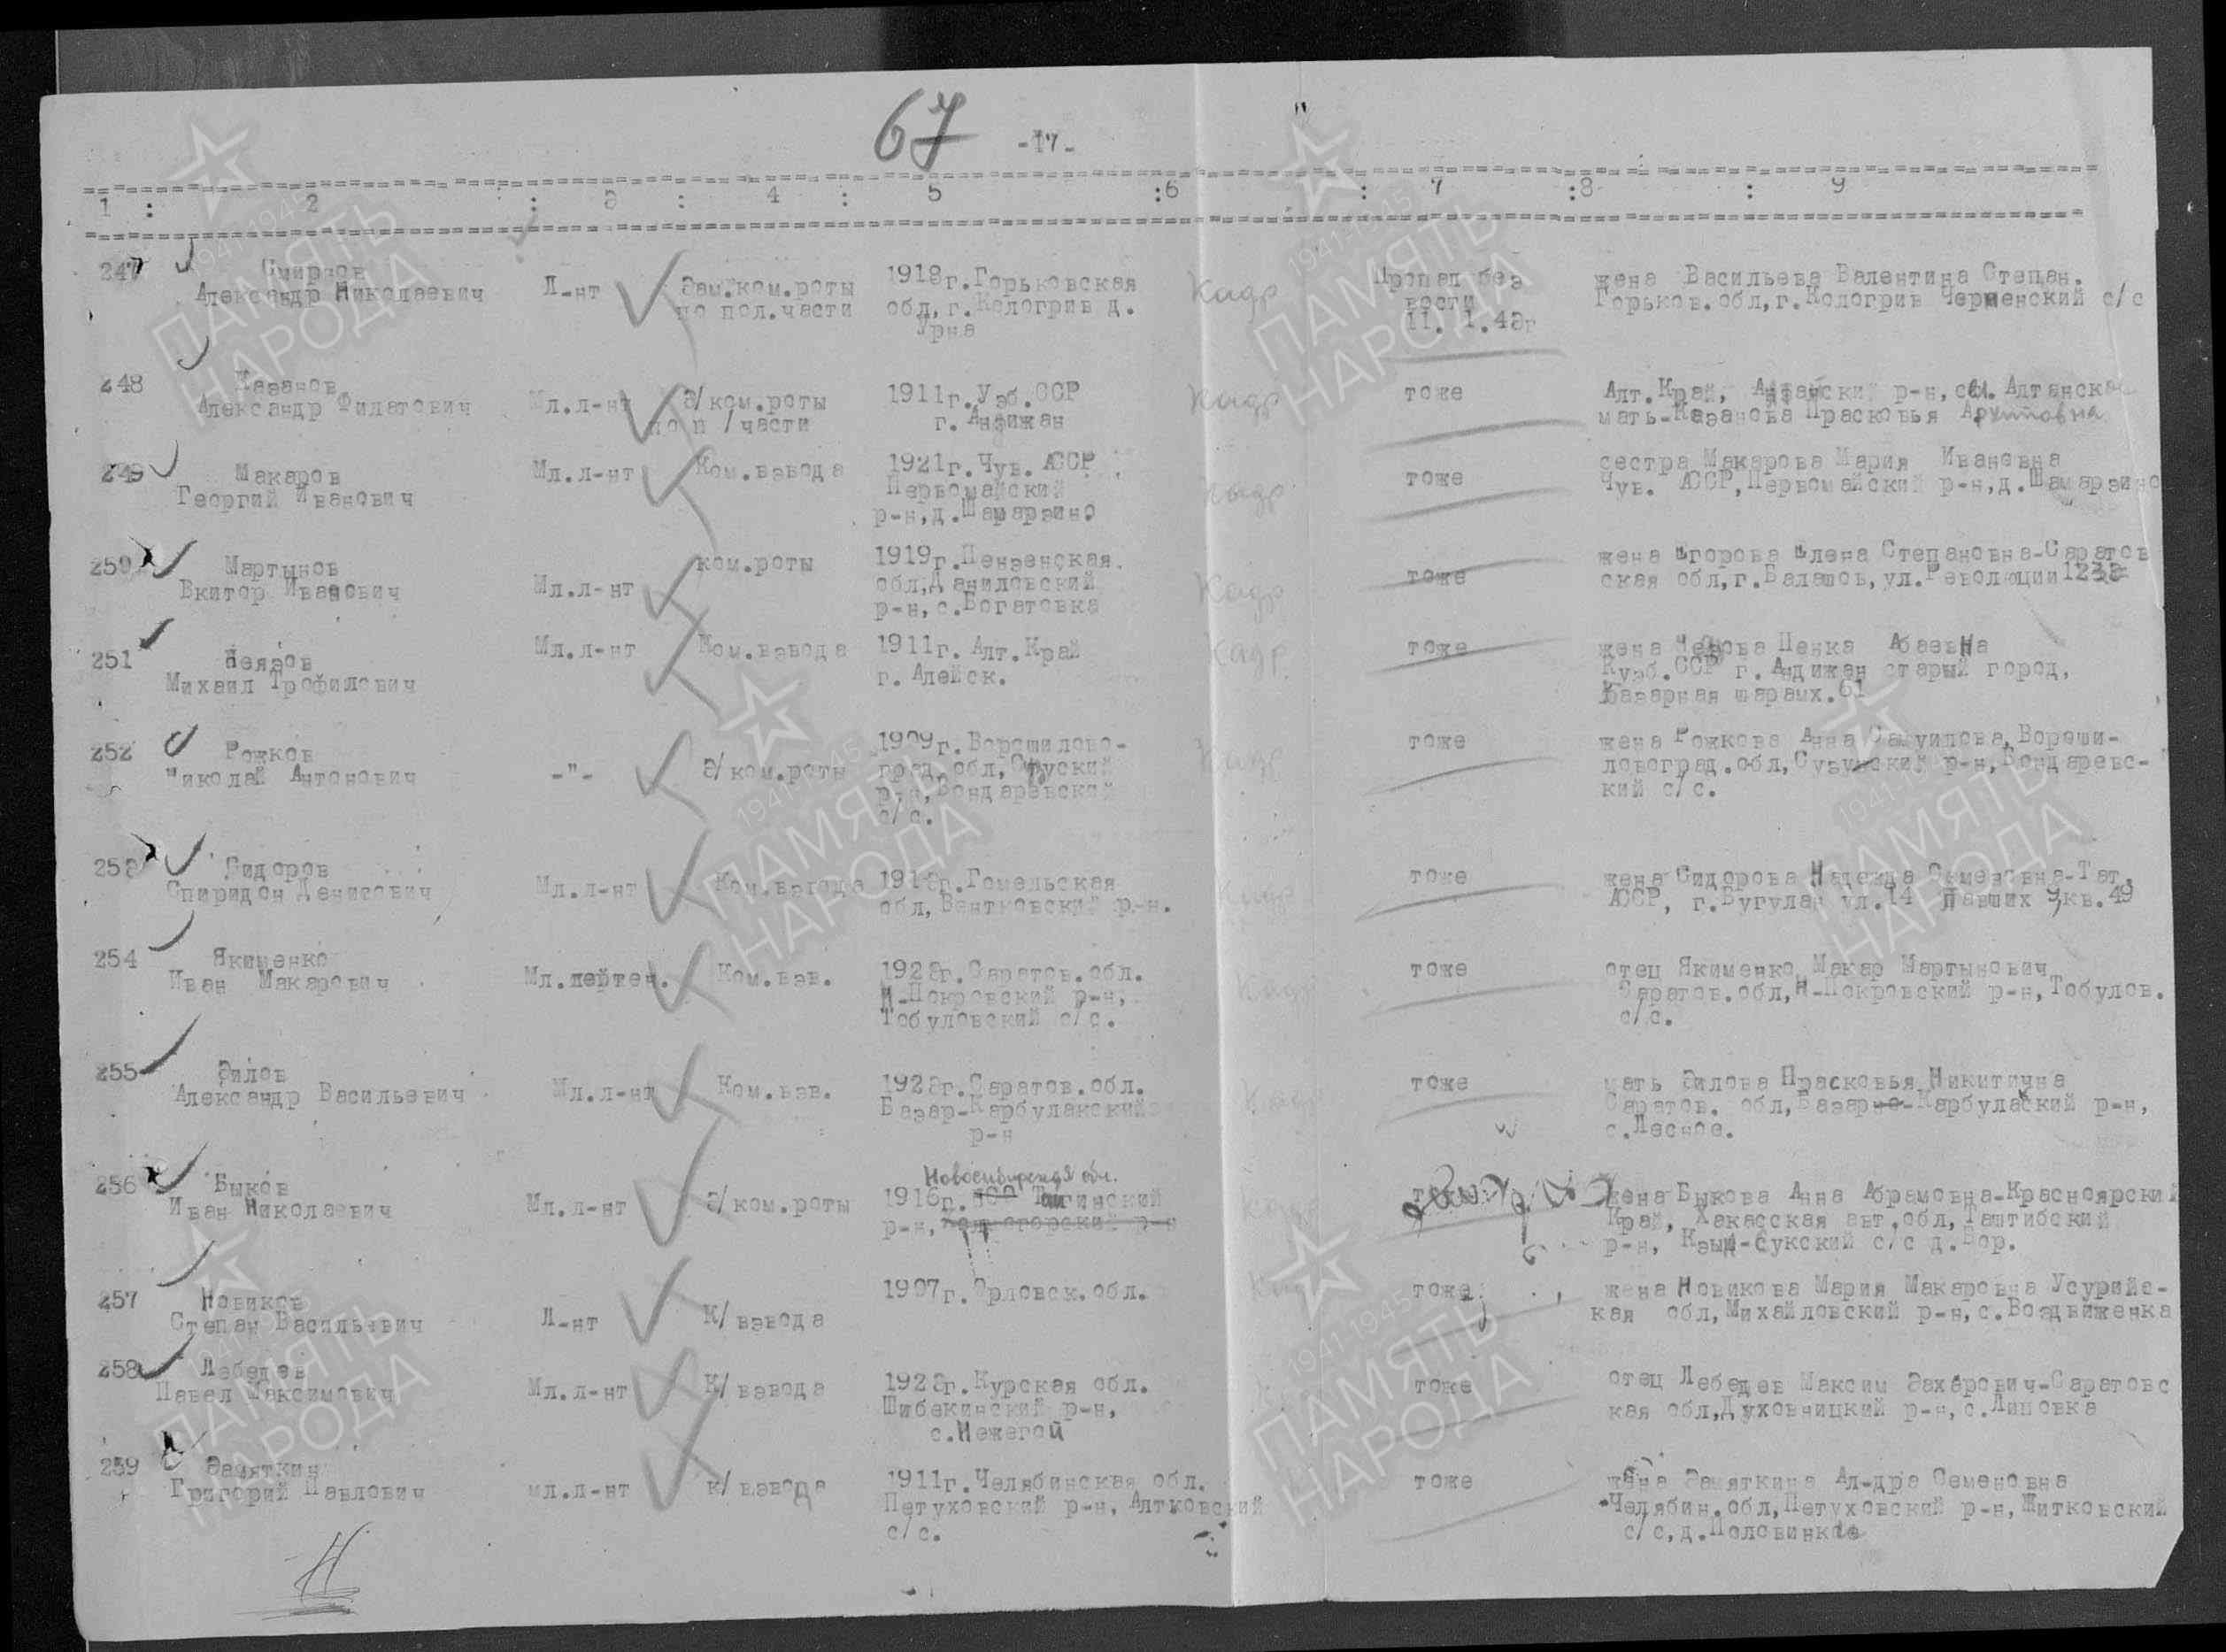 67 -17-
1 : 2 : 3 : 4 : 5 :6 : 7 :8 : 9
247 Смирнов Александр Николаевич Л-нт Зам.ком.роты по пол.части 1918г.Горьковская обл,г.Кологрив д. Урна Кадр Пропал без вести 11. 1.43г жена Васильева Валентина Степан. Горьков.обл,г.Кологрив Черменский с/с
248 Казанов Александр Филатович Мл.л-нт З/ком.роты по п /части 1911г.Узб.ССР г.Анжижан Кадр тоже Алт.Край, р-н, Алтанска мать-Казанова Прасковья
249 Макаров Георгий Иванович Мл.л-нт Ком.взвода 1921г.Чув. АССР Первомайский р-н,д.Шамарзино Кадр тоже сестра Макарова Мария Ивановна Чув. АССР,Первомайский р-н,д.Шамарзино
250 Мартынов Вкитор Иванович Мл.л-нт ком.роты 1919г.Пензенская обл,Даниловский р-н,с.Богатовка Кадр тоже жена Егорова Елена Степановна-Саратов ская обл,г.Балашов,ул.Революции
251 Неязов Михаил Трофилович Мл.л-нт Ком.взвода 1911г. Алт.Край г. Алейск. Кадр тоже жена Пенка Абаевна Куэб.ССР г.Андижан старый город, Базарная шарамх.61
252 Рожков Николай Антонович -"- З/ком.роты 1909г.Ворошилово-град.обл, р-н,Бондаревский с/с. Кадр тоже жена Рожкова Анна Самуиловa,Вороши-ловоград.обл, р-н,Бондаревс-кий с/с.
253 Сидоров Спиридон Денисович Мл.л-нт Ком.взвода Гомельская обл,Вентковский р-н. Кадр тоже жена Сидорова Надежда Семеновна-Тат. АССР, г.Бугулан ул.14 Павших 9,кв.49
254 Якименко Иван Макарович Мл.лейтен. Ком.взв. 1923г.Саратов.обл. Н-Покровский р-н, Тобуловский с/с. Кадр тоже отец Якименко Макар Мартынович Саратов.обл,Н-Покровский р-н,Тобулов. с/с.
255 Зилов Александр Васильевич Мл.л-нт Ком.взв. 1923г.Саратов.обл. Базар-Карбулакский р-н Кадр тоже мать Зилова Прасковья Никитична Саратов. обл,Базарно-Карбулакский р-н, с.Лесное.
256 Быков Иван Николаевич Мл.л-нт З/ком.роты Новосибирская обл. 1916г. Тайгинский р-н, Кадр жена Быкова Анна Абрамовна-Красноярский Край, Хакасская авт.обл,Таштибский р-н, Кзыл-сукский с/с д.Бор.
257 Новиков Степан Васильевич Л-нт К/взвода 1907г.Орловск.обл. тоже жена Новикова Мария Макаровна Усурийс-кая обл,Михайловский р-н,с.Воздвиженка
258 Лебедев Павел Максимович Мл.л-нт К/взвода 1923г.Курская обл. Шибекинский р-н, с.Нежегой тоже отец Лебедев Максим Захарович-Саратовс кая обл,Духовницкий р-н,с.Липовка
259 Замяткин Григорий Павлович мл.л-нт к/взвода 1911г.Челябинская обл. Петуховский р-н, Алтковский с/с. тоже жена Замяткина Ал-дра Семеновна Челябин.обл,Петуховский р-н,Житковский с/с,д.Половинкое
1941-1945
ПАМЯТЬ
НАРОДА